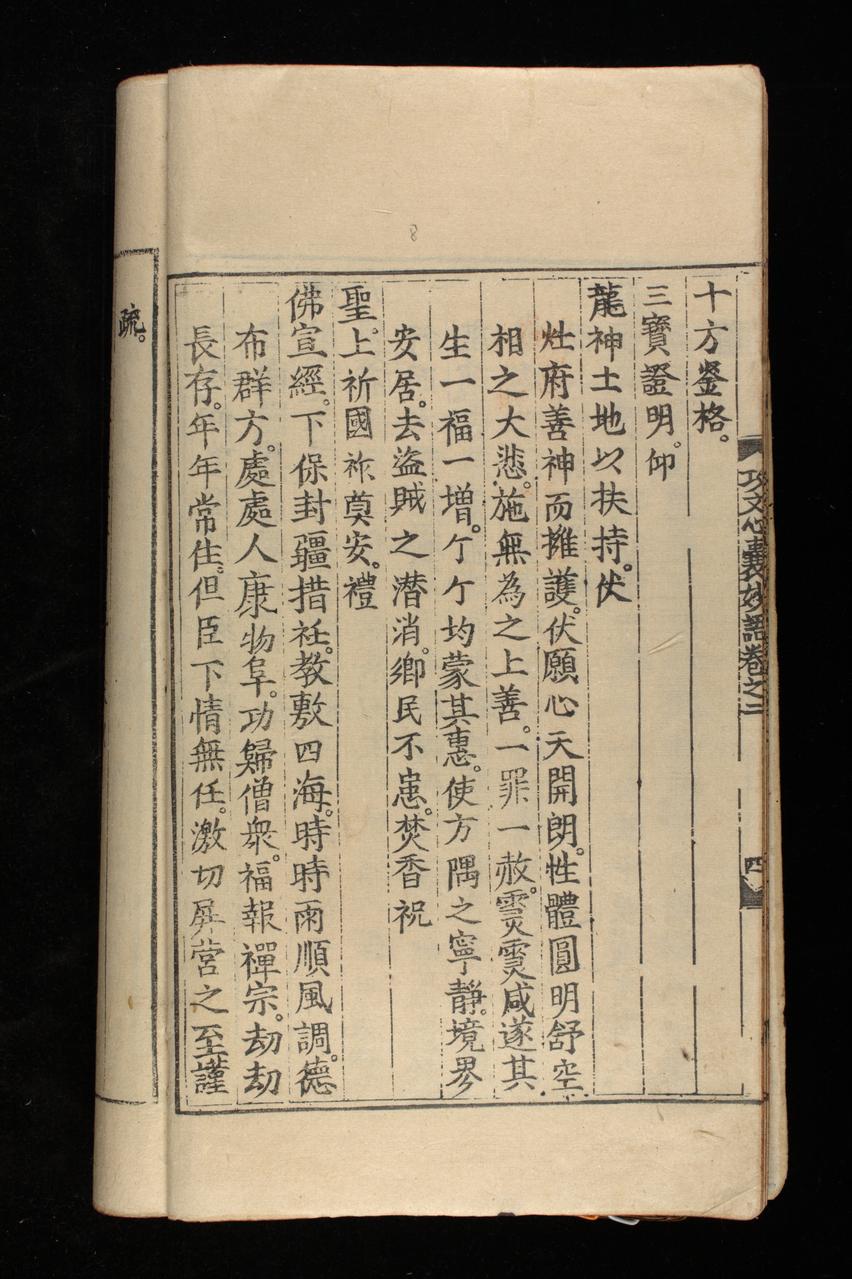 十方鋻格。
三寶證明。仰
龍神土地以扶持。伏
灶府善神而擁護。伏願心天開朗。性體圓明舒空
相之大悲。施無為之上善。一罪一赦。霊霊咸遂其
生一福一增。亇亇均蒙其惠。使方隅之寧静。境界
安居。去盜賊之潜消。鄉民不患。焚香祝
聖。上祈國祚奠安。禮
佛宣經。下保封疆措袵。教敷四海。時時雨順風調。德
布群方。處處人康物阜。功歸僧衆。福報禪宗。劫劫
長存。年年常住。但臣下情無任。激切屏营之至謹
疏。
攻文心囊妙語卷之二
四
8